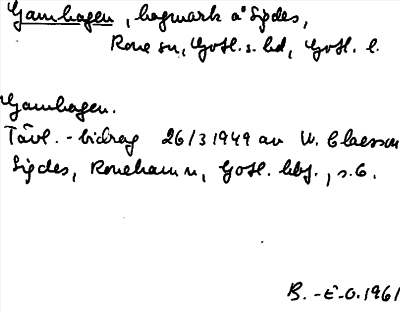 Gamhagen, hagmark å Sigdes,
Rone sn, Gotl. s. hd, Gotl. l.
Gamhagen.
Tävl.-bidrag 26/3 1949 av W. Claesson
Sigdes, Ronehamn, Gotl. , s. 6.
B.-E.O. 1961